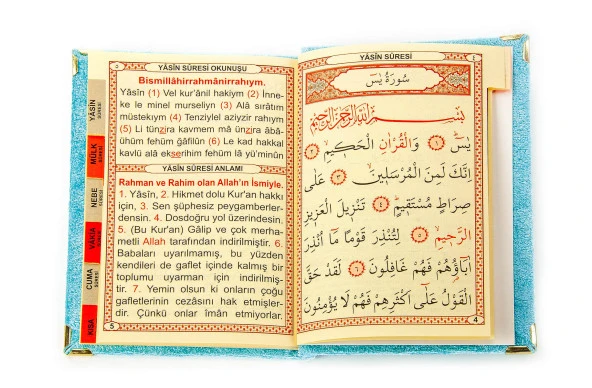 ٥
YÂSİN SÛRESİ OKUNUŞU
Bismillâhirrahmânirrahıym.
Yâsîn (1) Vel kur'ânil hakiym (2) İnne-
ke le minel murseliyn (3) Alâ sırâtım
müstekıym (4) Tenziylel aziyzir rahıym
(5) Li tünzira kavmem mâ ünzira âbâ-
ühüm fehüm gâfilûn (6) Le kad hakkal
kavlü alâ ekserihim fehüm lâ yü'minûn
YÂSİN SÛRESİ ANLAMI
Rahman ve Rahim olan Allah'ın İsmiyle.
1. Yâsîn, 2. Hikmet dolu Kur'an hakkı
için, 3. Sen şüphesiz peygamberler-
densin. 4. Dosdoğru yol üzerindesin.
5. (Bu Kur'an) Gâlip ve çok merha-
metli Allah tarafından indirilmiştir. 6.
Babaları uyarılmamış, bu yüzden
kendileri de gaflet içinde kalmış bir
toplumu uyarman için indirilmiş-
tir. 7. Yemin olsun ki onların çoğu
gafletlerinin cezâsını hak etmişler-
dir. Çünkü onlar îmân etmiyorlar.
5
YÂSİN
SÛRESİ
MÜLK
SÛRESİ
NEBE
SÛRESİ
VÂKIA
SÛRESİ
CUMA
SÛRESİ
KISA
YÂSİN SÛRESİ
٤
سُورَةُ يٰسٓ
بِسْمِ اللّٰهِ الرَّحْمٰنِ الرَّحِيمِ
يٰسٓ ﴿١﴾ وَالْقُرْاٰنِ الْحَكِيمِ ﴿٢﴾
اِنَّكَ لَمِنَ الْمُرْسَلِينَ ﴿٣﴾ عَلٰى
صِرَاطٍ مُسْتَقِيمٍ ﴿٤﴾ تَنْزِيلَ الْعَزِيزِ
الرَّحِيمِ ﴿٥﴾ لِتُنْذِرَ قَوْمًا مَٓا اُنْذِرَ
اٰبَٓاؤُ۬هُمْ فَهُمْ غَافِلُونَ ﴿٦﴾ لَقَدْ حَقَّ
الْقَوْلُ عَلٰٓى اَكْثَرِهِمْ فَهُمْ لَا يُؤْمِنُونَ
4